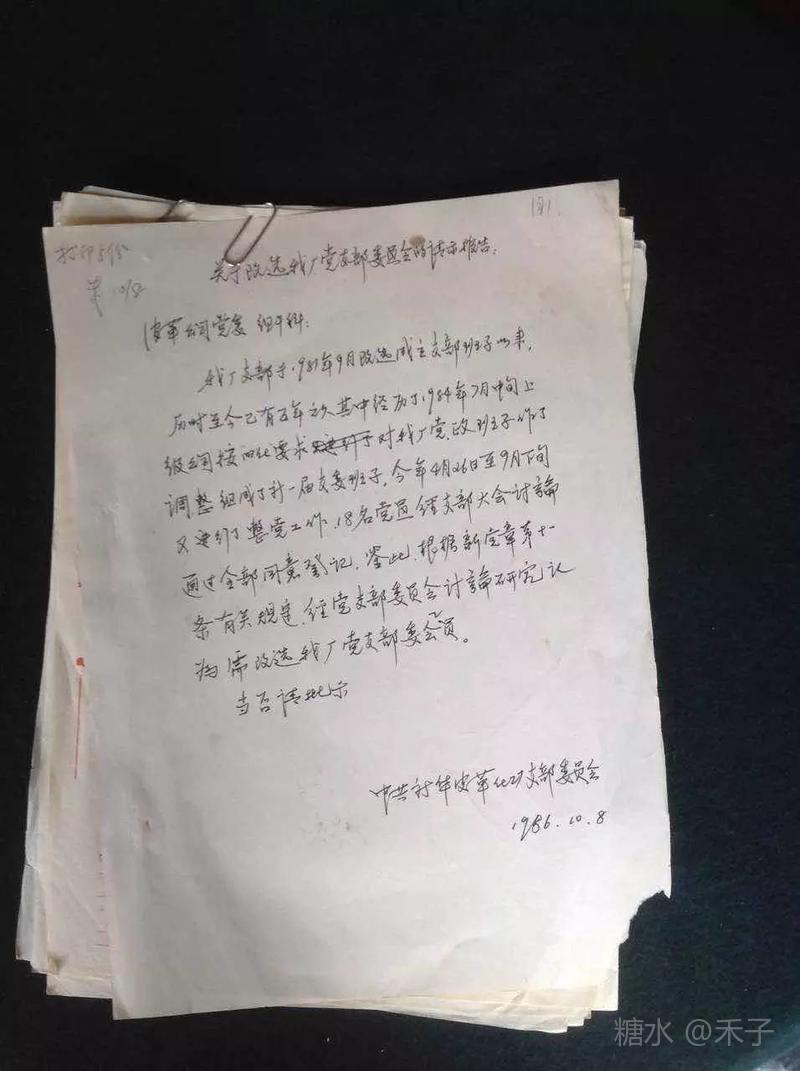 打印5份
10/8
关于改选我厂党支部委员会的请示报告:
皮革公司党委 组干科:
我厂支部于1981年9月改选成立支部班子以来,
历时至今已有五年之久其中经历了1984年7月中旬上
级公司按四化要求对我厂党政班子作了
调整组成了新一届支委班子。今年4月26日至9月下旬
又进行了整党工作,18名党员经支部大会讨論
通过全部同意登记。鉴此,根据新党章第十一
条有关规定,经党支部委员会讨論研究认
为需改选我厂党支部委会员。
当否请批示
中共新华皮革化工支部委员会
1986.10.8
糖水 @禾子